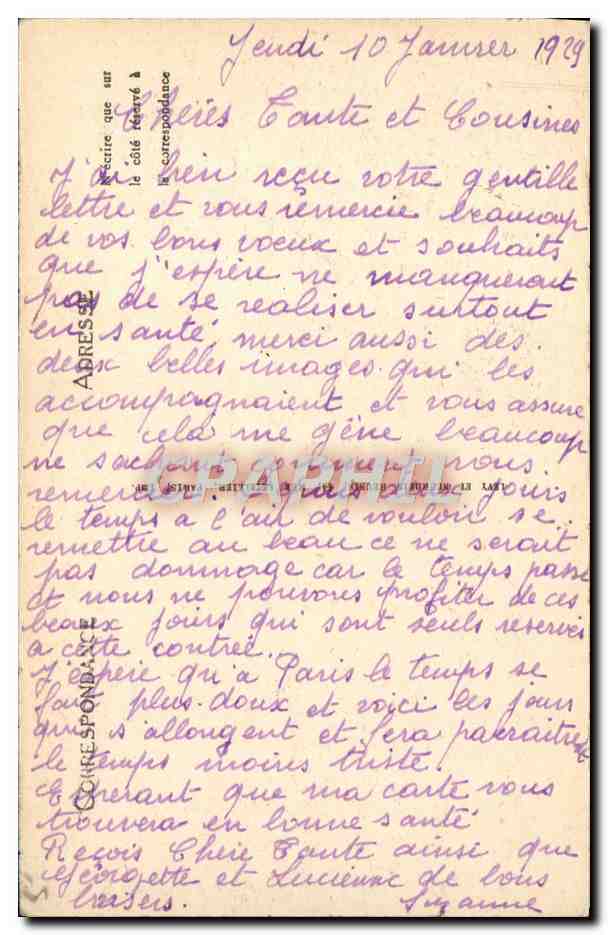 Jeudi 10 Janvier 1929
Chères Tante et Cousines
J'ai bien reçu votre gentille
lettre et vous remercie beaucoup
de vos bons voeux et souhaits
que j'espère ne manqueront
pas de se realiser surtout
en santé, merci aussi des
deux belles images qui les
accompagnaient et vous assure
que cela me gène beaucoup
ne sachant comment vous
remercier. Depuis deux jours
le temps a l'air de vouloir se
remettre au beau ce ne serait
pas dommage car le temps passe
et nous ne pouvons profiter de ces
beaux jours qui sont seuls reservés
a cette contrée.
J'espère qu'a Paris le temps se
fait plus doux et voici les jours
qui s'allongent et fera paraitre
le temps moins triste.
Esperant que ma carte vous
trouvera en bonne santé
Reçois Chère Tante ainsi que
Georgette et Lucienne de bons
baisers. Suzanne
N'écrire que sur
le côté réservé à
la correspondance
ADRESSE
CORRESPONDANCE
CPARPHIL
LEVY ET NEURDEIN REUNIS, 44, RUE LETELLIER, PARIS, IMP.